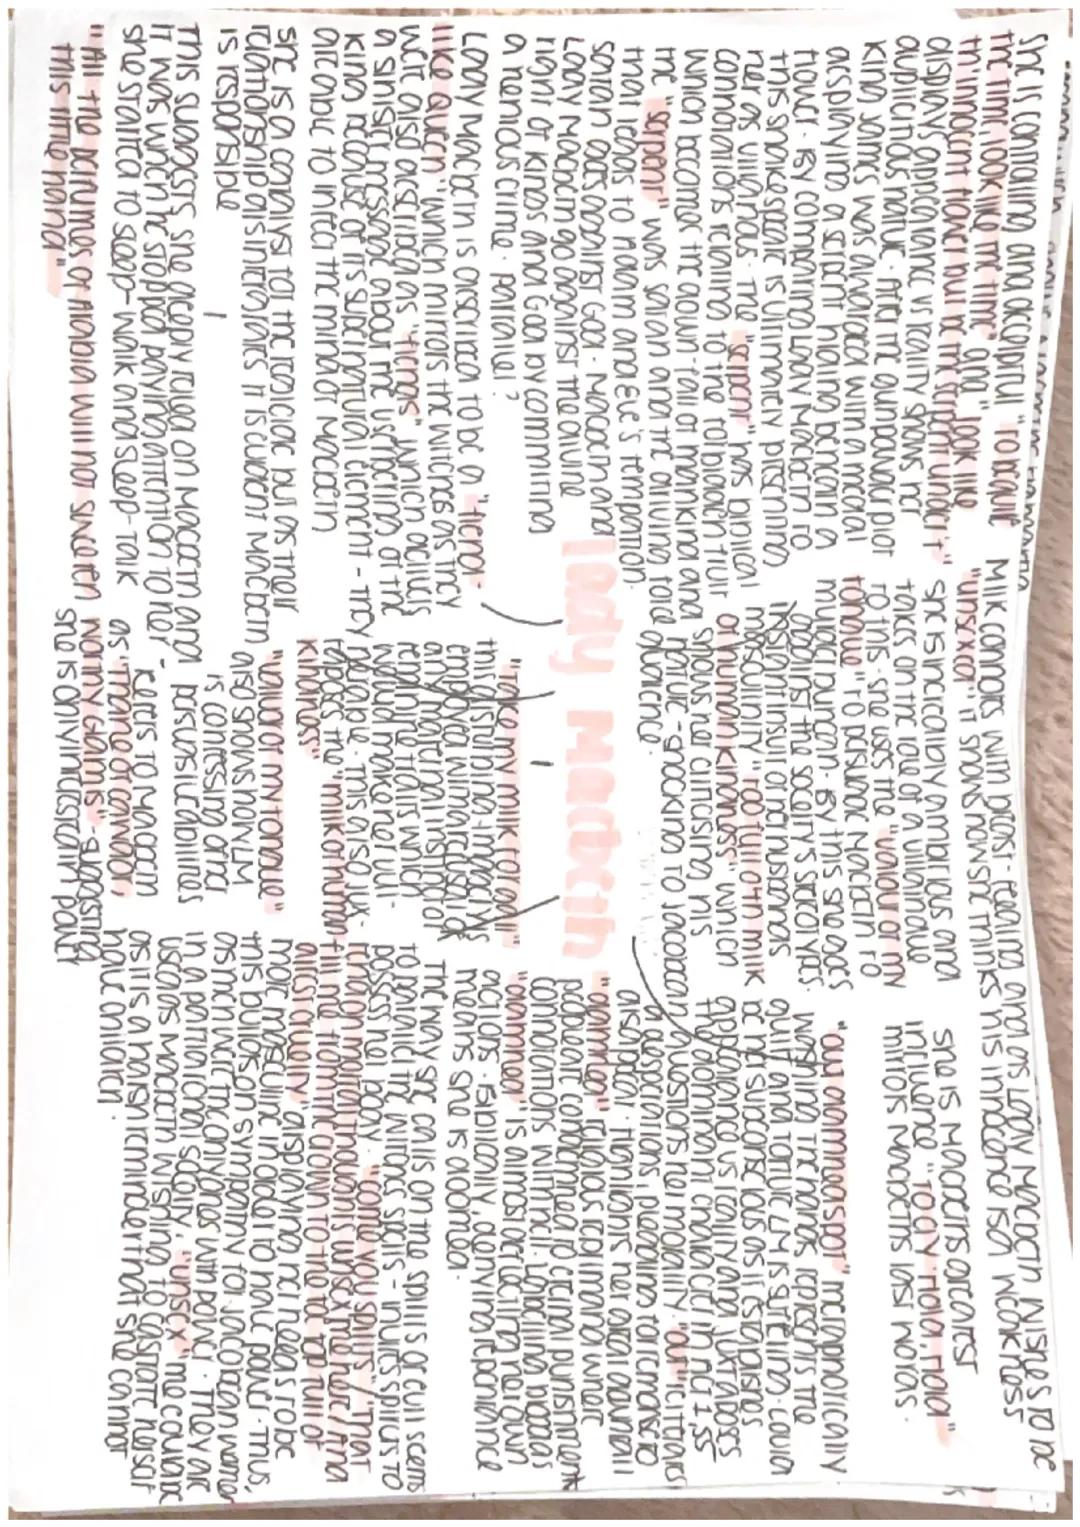 She is controlling and deceptful "to beguile
the time, look like the time" and "look like
th'innocent flower but be the serpent under't"
displays appearance vs reality shows her
duplicitous nature. After the gunpowder plot
King James was awarded with a medal
displaying a serpent hiding beneath a
flower. By comparing Lady Macbeth to
this Shakespeare is ultimately presenting
her as villainous. The "serpent" has biblical
connotations relating to the forbidden fruit
which becomes the downfall of mankind and
the "serpent" was satan and the driving force
that leads to Adam and Eve's temptation.
Satan goes against God. Macbeth and
Lady Macbeth go against the divine
right of kings and God by committing
a heinous crime. Parallel?
Lady Macbeth is described to be a "fiend-
like queen" which mirrors the witches as they
were also described as "fiends" which depicts
a sinister message about the usurping of the
king because of its supernatural element - they
are able to infect the mind of Macbeth
She is a catalyst for the regicide but as their
relationship disintegrates it is evident Macbeth
is responsible
This suggests she deeply relied on Macbeth and
it was when he stopped paying attention to her
she started to sleep-walk and sleep-talk
"All the perfumes of Arabia will not sweeten
this little hand"
Lady Macbeth
Milk connotes with breast-feeding and as Lady Macbeth wishes to be
"unsexed" it shows how she thinks his innocence is a weakness
She is incredibly ambitious and
takes on the role of a villain due
to this. She uses the "valour of my
tongue" to persuade Macbeth to
murder Duncan. By this she goes
against the society's stereotypes.
masculinity "too full o'th'milk
of human kindness" which
shows her criticising his
nature - shocking to Jacobean
audience.
"take my milk for gall"
this disturbing imagery is
"milk of human
kindness"
"valour of my tongue"
also shows how LM
is controlling and
persuasive abilities
- refers to Macbeth
as "thane of Cawdor,
worthy Glamis" - suggesting
she is only interested in power
She is Macbeth's dearest
influence "to cry 'Hold, hold'"
mirrors Macbeth's last words.
"out damned spot" metaphorically
washing the hands represents the
guilt and torture LM is suffering. Could
be her subconscious as it establishes
appearance vs reality and juxtaposes
the dominant character in Act 1, S5
Questions her morality "out" iterates
a desperation, pleading for them to
disappear. Highlights her great downfall
"damned" religious repli
commandment
connotations with hell. Labelling herself as
"damned" is almost declaring her own
actions. Biblically, denying repentance
means she is doomed.
The way she calls on the spirits or evil seems
to mimic the witches' spells - invites spirits to
possess her body. "Come you spirits"/"that
tend on mortal thoughts unsex me here/And
fill me from the crown to the toe top-full of
direst cruelty" displaying her need to be
more masculine in order to have power. Thus,
this builds on sympathy for Jacobean women
as they were
in a patriarchal society, "unsex" me could be
used as Macbeth wishing to castrate herself
as it is a harsh reminder that she cannot
have an heir.